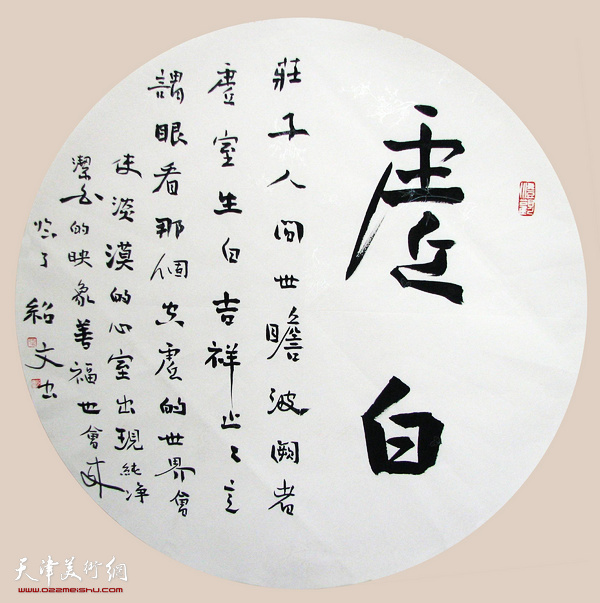 虛白
莊子人間世瞻彼闕者
虛室生白吉祥止々言
謂眼看那個空虛的世界會
使淡漠的心室出現純净
潔白的映象善福也會來
紹文书
天津美術網
www.022meishu.com